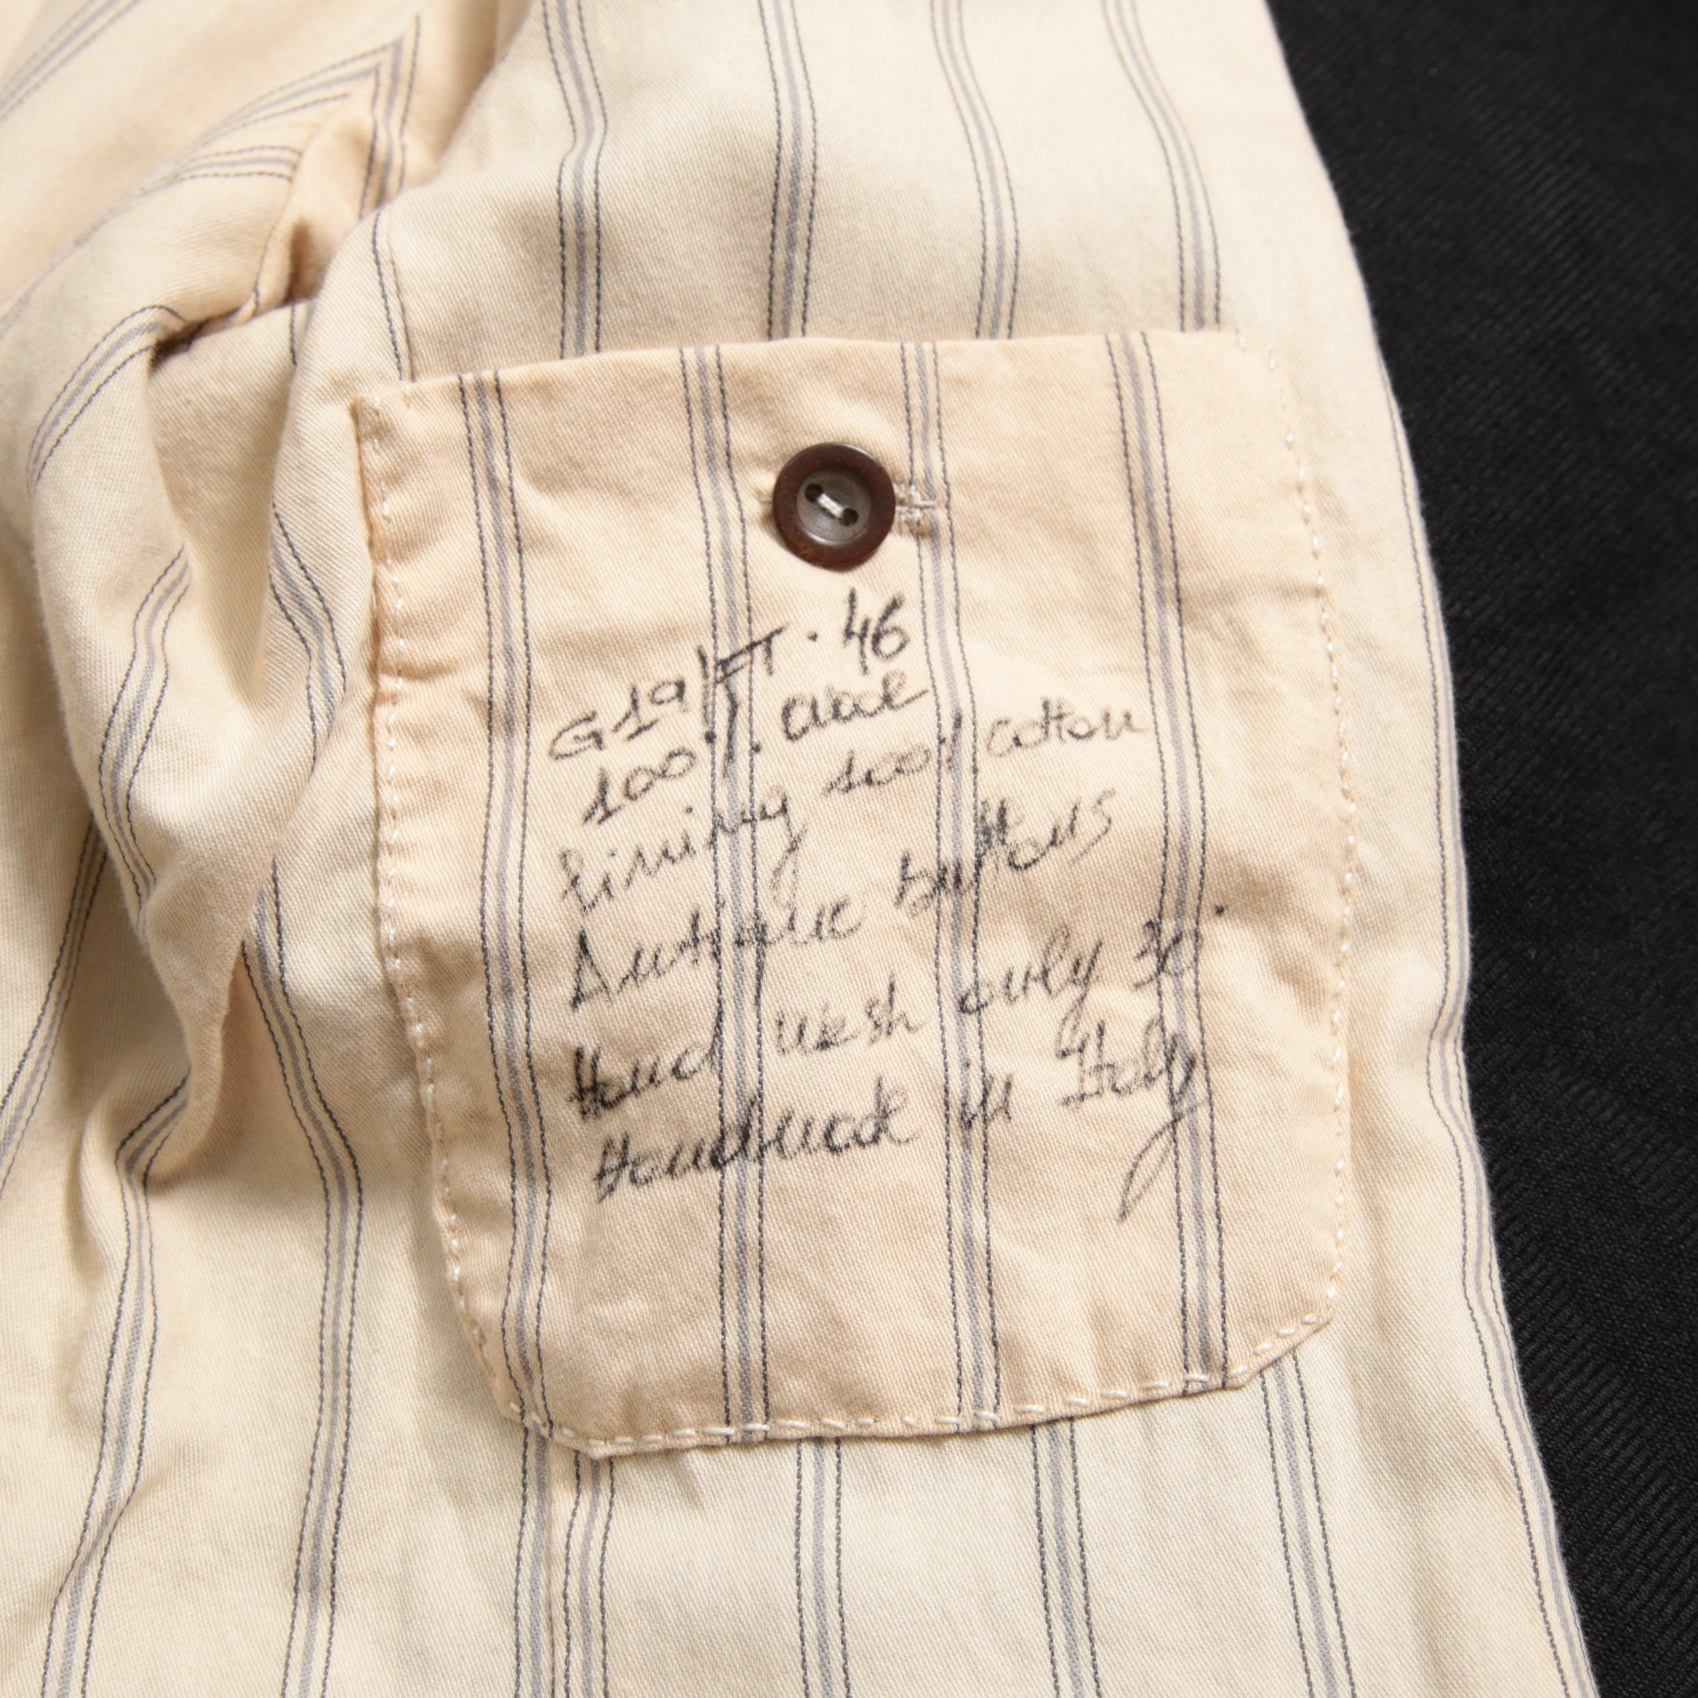 G19/FT. 46
100%. Wool
Lining 100% cotton
Antique buttons
Hand wash only 30°
Handmade in Italy